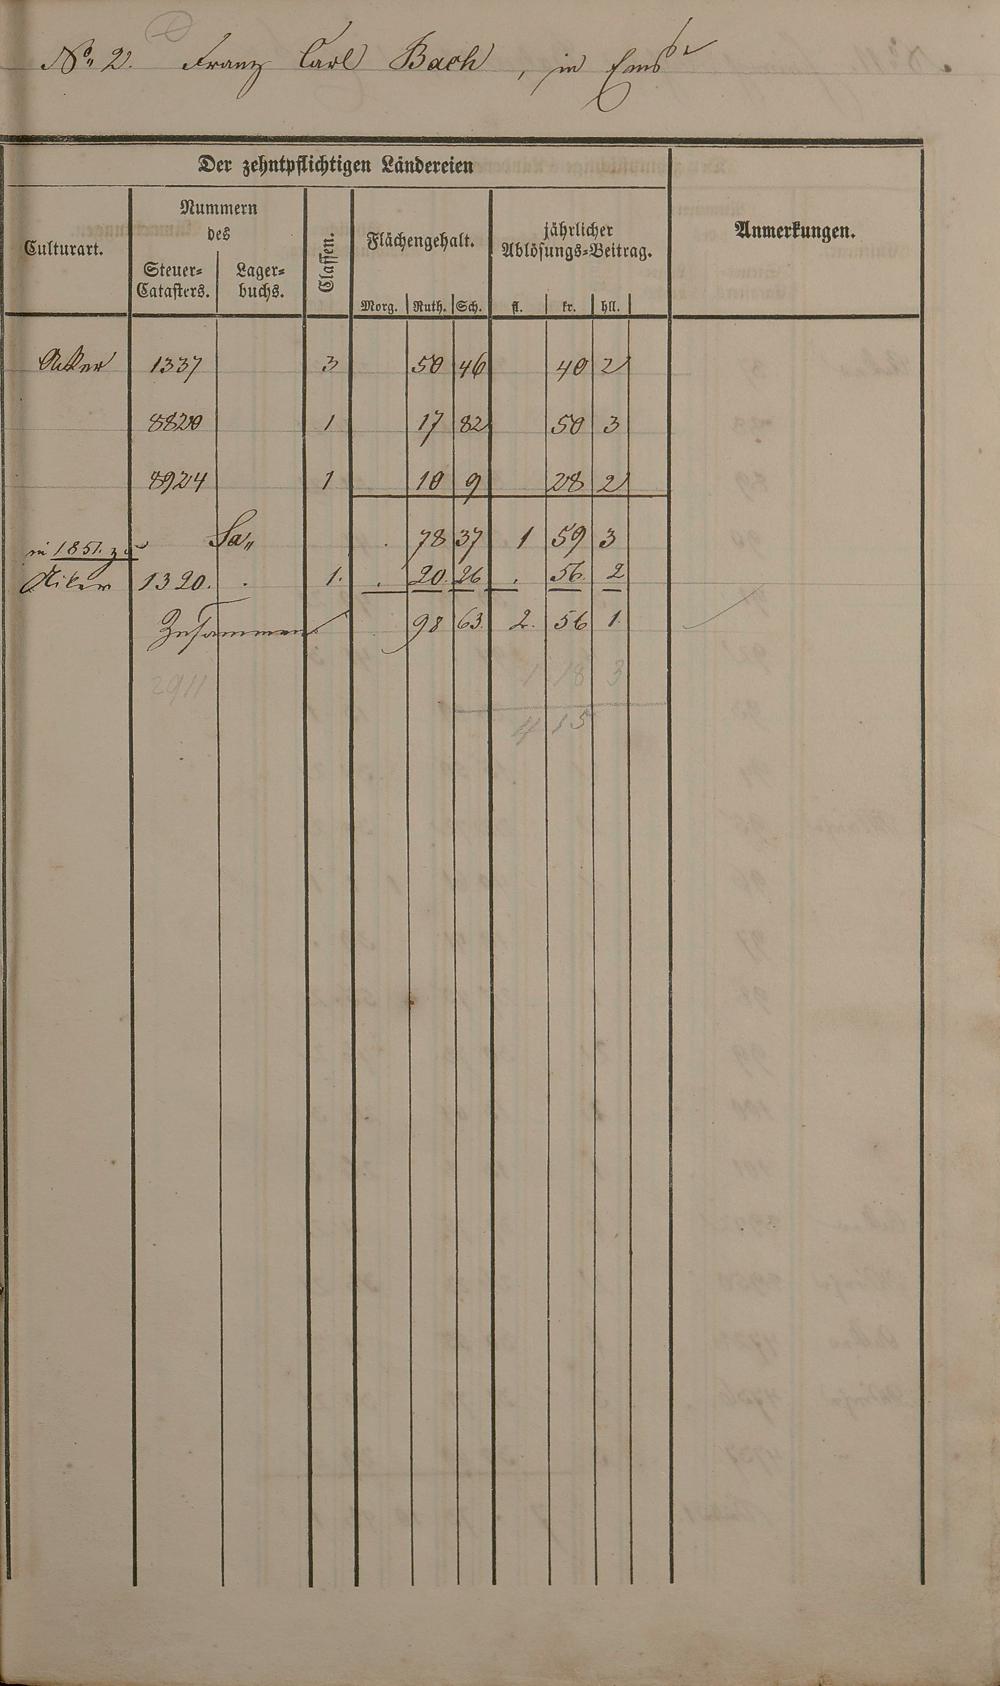 No. 2. Franz Carl Bach, in Ems
Der zehntpflichtigen Ländereien
Culturart. Nummern des Steuer-Catasters. Lager-buchs. Classen. Flächengehalt. Morg. Ruth. Sch. jährlicher Ablösungs-Beitrag. fl. kr. hll. Anmerkungen.
Acker 1337 3 50 46 40 2
8820 1 17 82 50 3
8924 1 10 9 28 2
Sa„ 78 37 1 59 3
in 1851. zu
Acker 1320. 1. 20. 26 56 2
Zusammen 98 63. 2. 56 1.
2911 1 18 3
4 15